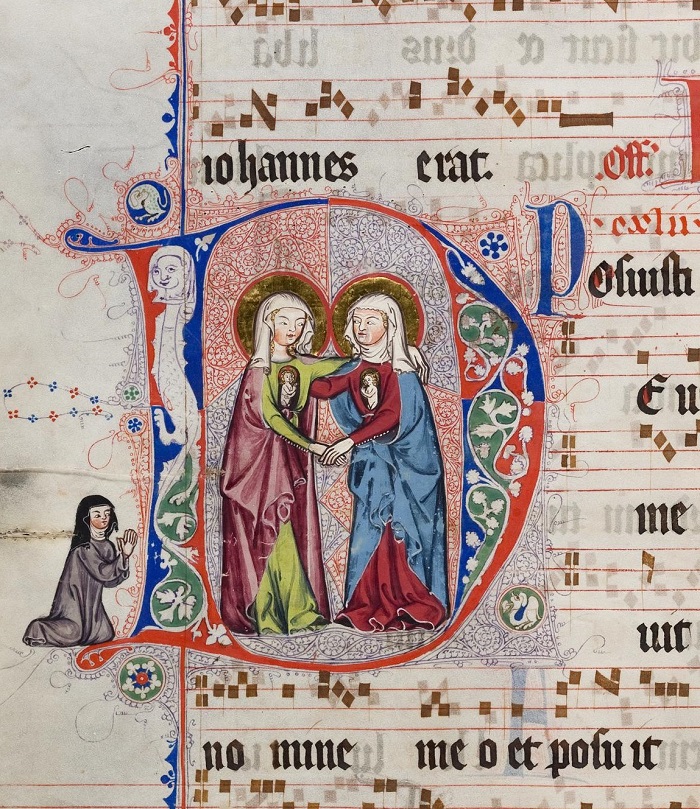 iohannes erat. Off:
P exlu
osuisti
E u
me
uit
no mine me o et posu it